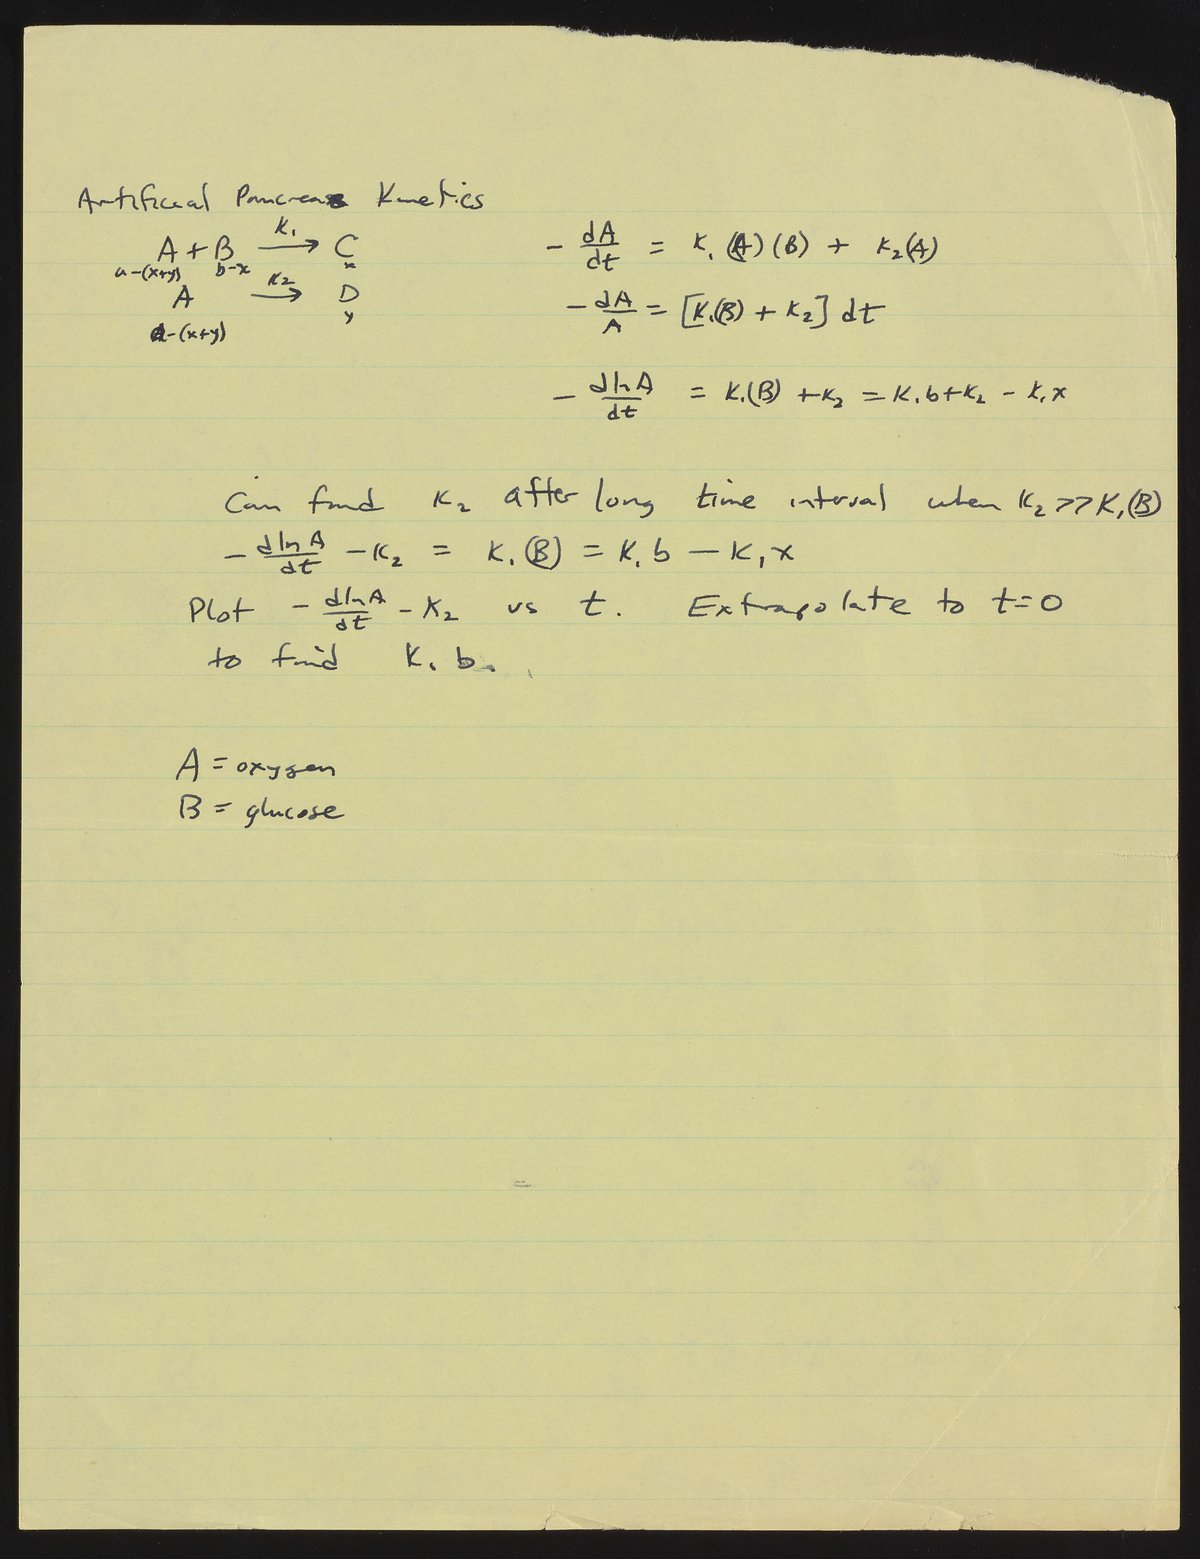 Artificial Pancreas Kinetics
A + B —K₁→ C
a-(x+y) b-x x
A —K₂→ D
a-(x+y) y
- dA/dt = K₁(A)(B) + K₂(A)
- dA/A = [K₁(B) + K₂] dt
- dlnA/dt = K₁(B) + K₂ = K₁b + K₂ - K₁x
Can find K₂ after long time interval when K₂ >> K₁(B)
- dlnA/dt - K₂ = K₁(B) = K₁b - K₁x
Plot - dlnA/dt - K₂ vs t. Extrapolate to t=0
to find K₁b.
A = oxygen
B = glucose